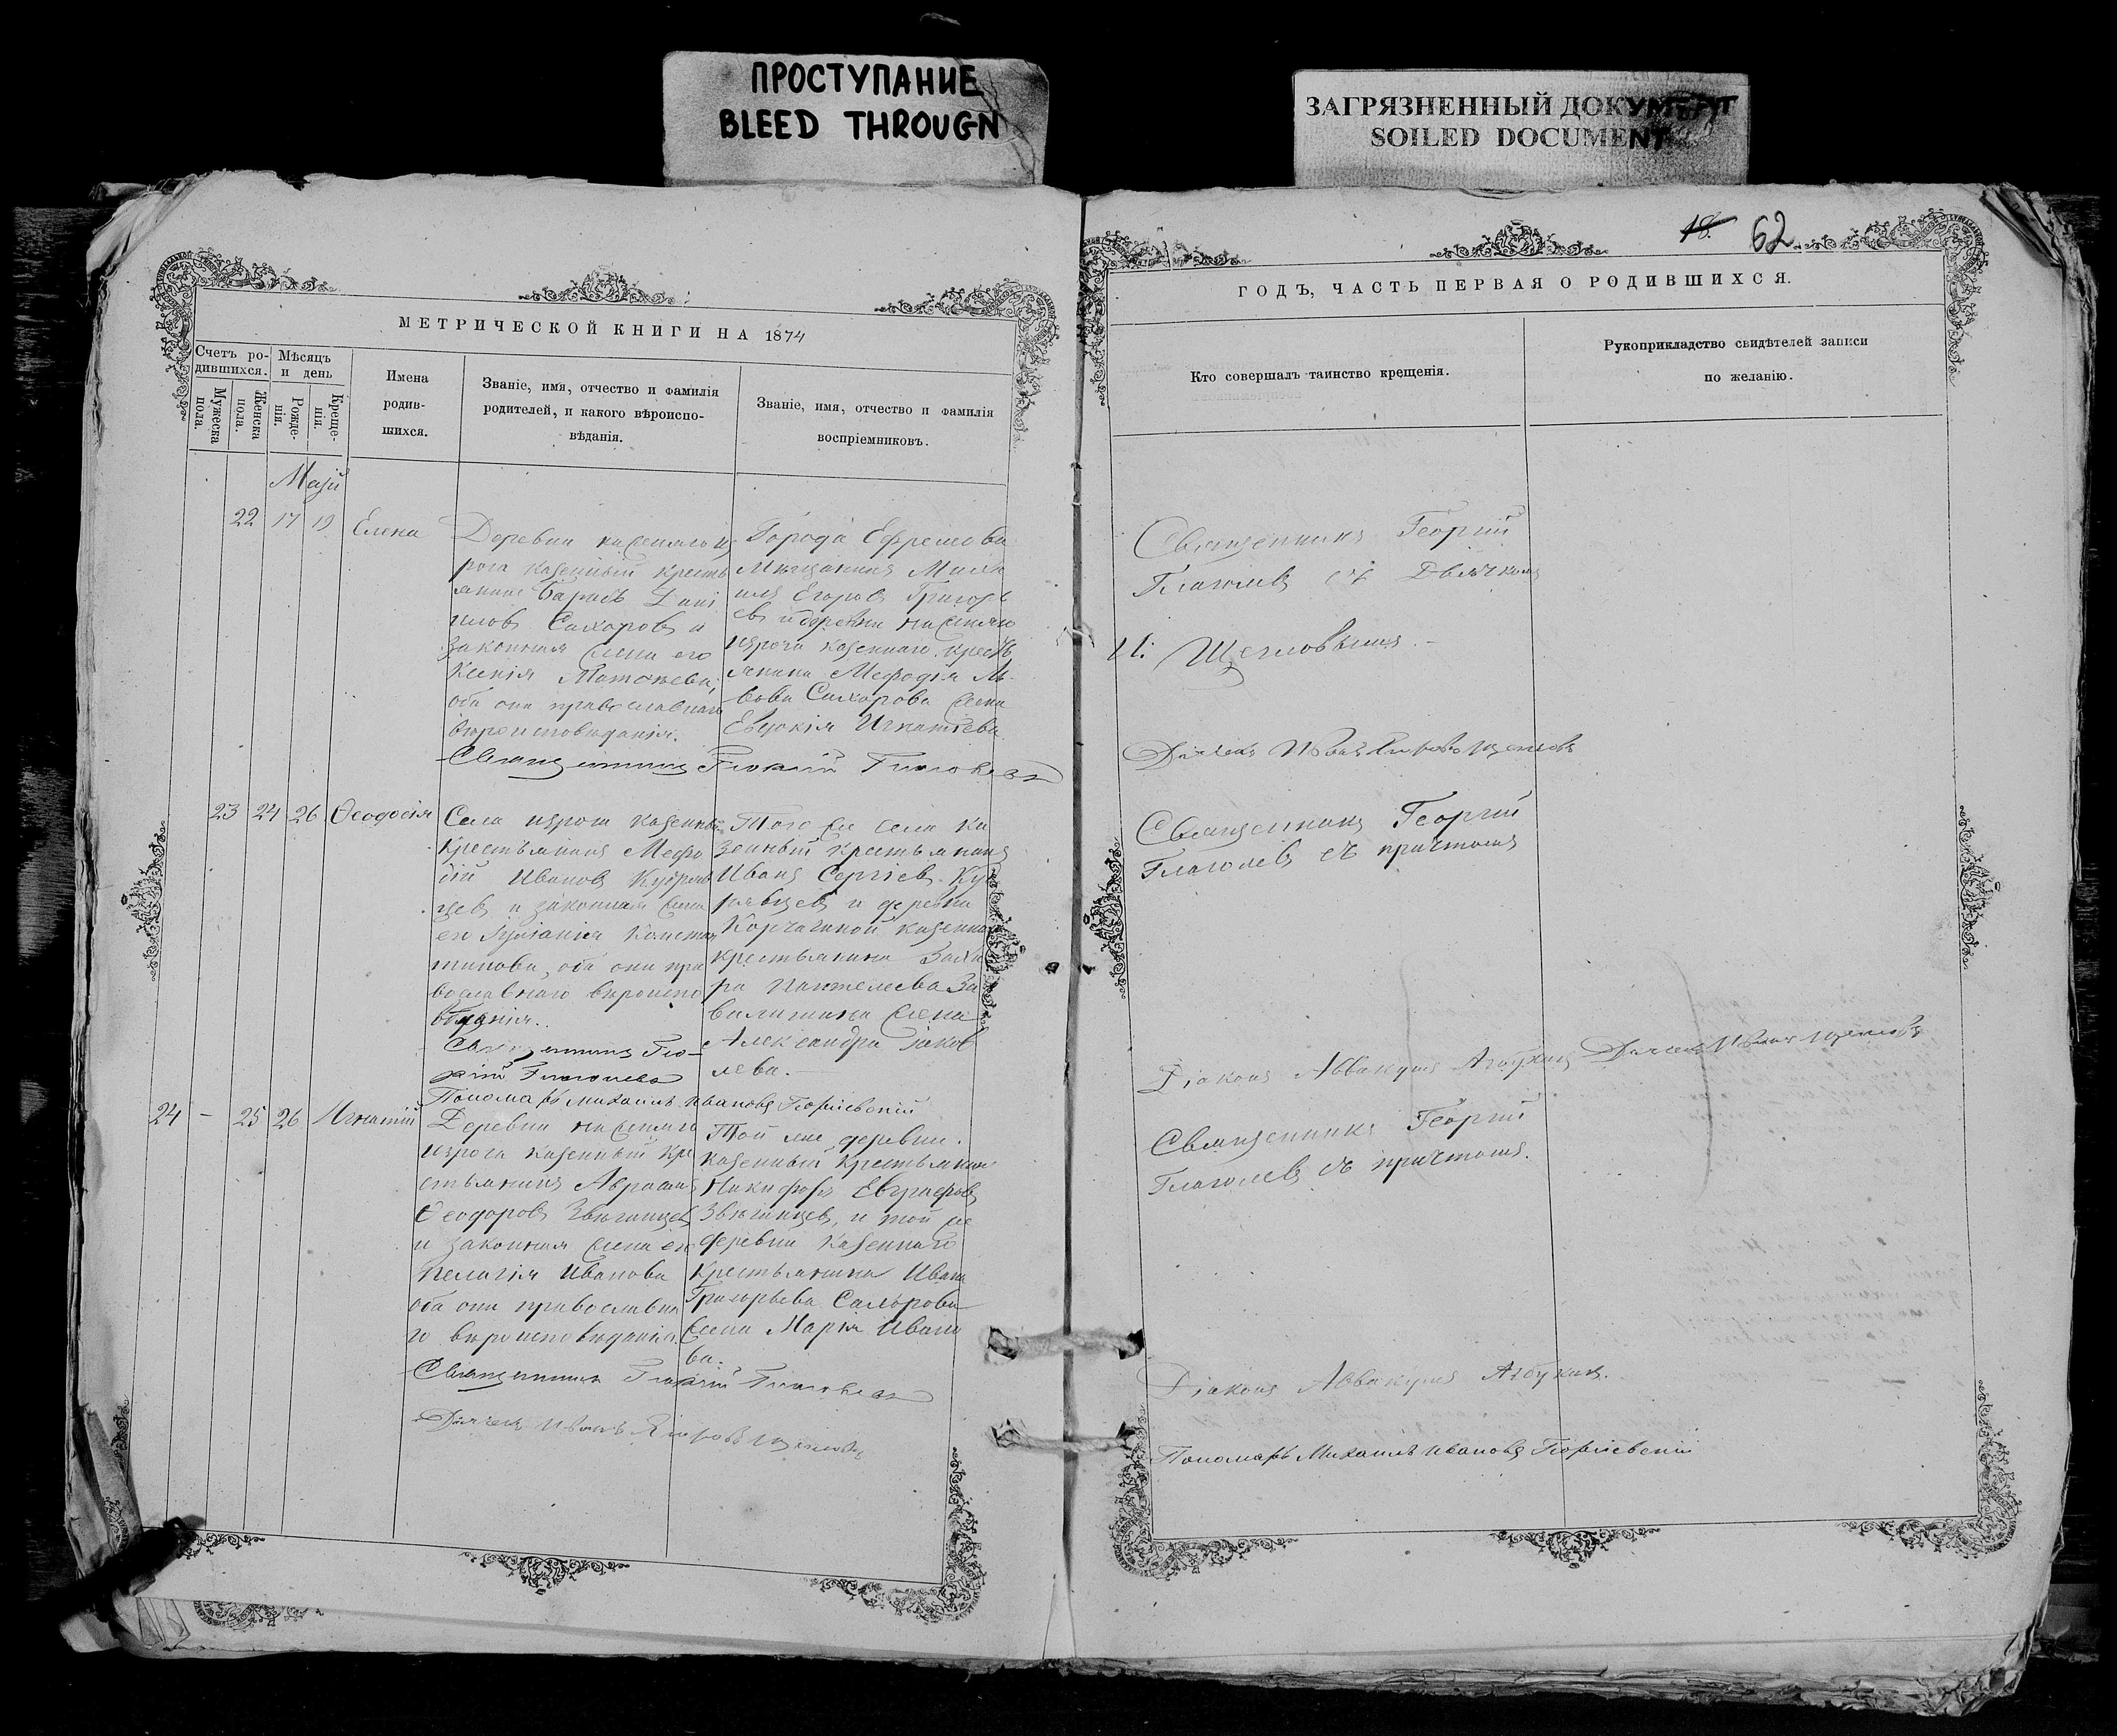 ПРОСТУПАНИЕ
BLEED THROUGN
ЗАГРЯЗНЕННЫЙ ДОКУМЕНТ
SOILED DOCUMENT
МЕТРИЧЕСКОЙ КНИГИ НА 1874
Счетъ ро-
дившихся.
Мужеска
пола.
Женска
пола.
Мѣсяцъ
и день
Рожде-
нія.
Креще-
нія.
Имена
родив-
шихся.
Званіе, имя, отчество и фамилія
родителей, и какого вѣроиспо-
вѣданія.
Званіе, имя, отчество и фамилія
воспріемниковъ.
Май
22 17 19 Елена
Деревни
рога казенный кресть
янинъ Борисъ Дані
иловъ Сахаровъ и
законная жена его
Ксенія
оба они православнаго
вѣроисповѣданія.
Города Ефремова
Мѣщанинъ Миха
илъ Егоровъ Григорь
евъ и деревни
изрога казеннаго кресть
янина Мефодія Ль
вова Сахарова жена
Евдокія Игнатіева
Священникъ Георгій Глаголевъ
23 24 26 Ѳеодосія
Села изрога казенный
крестьянинъ Мефо
дій Ивановъ Кудряв
цевъ и законная жена
его Іуліанія Констан
тинова, оба они пра
вославнаго вѣроиспо
вѣданія.
Священникъ Гео-
ргій Глаголевъ
Того же села ка
зенный крестьянинъ
Иванъ Сергіевъ Куд
рявцевъ и деревни
Корчагиной казеннаго
крестьянина Заха
ра Пантелеева За
жена
Александра Іаков
лева.
Пономарь Михаилъ Ивановъ Георгіевскій
24 - 25 26 Игнатій
Деревни
изрога казенный кре
стьянинъ Аврамъ
Ѳеодоровъ Звягинцевъ
и законная жена его
Пелагія Иванова
оба они православна
го вѣроисповѣданія.
Той же деревни
казенный крестьянинъ
Никифоръ Евграфовъ
Звягинцевъ, и той же
деревни казеннаго
крестьянина Ивана
Григорьева Сахарова
жена Марія Ивано
ва.
Священникъ Георгій Глаголевъ
Дьячекъ Иванъ Егоровъ Щегловъ
18. 62
ГОДЪ, ЧАСТЬ ПЕРВАЯ О РОДИВШИХСЯ.
Кто совершалъ таинство крещенія.
Рукоприкладство свидѣтелей записи
по желанію.
Священникъ Георгій
Глаголевъ съ Дьячкомъ
И: Щегловымъ
Дьячекъ Иванъ Егоровъ Щегловъ
Священникъ Георгій
Глаголевъ съ причтомъ
Діаконъ Аввакумъ Азбукинъ Дьячекъ Иванъ Щегловъ
Священникъ Георгій
Глаголевъ съ причтомъ.
Діаконъ Аввакумъ Азбукинъ.
Пономарь Михаилъ Ивановъ Георгіевскій